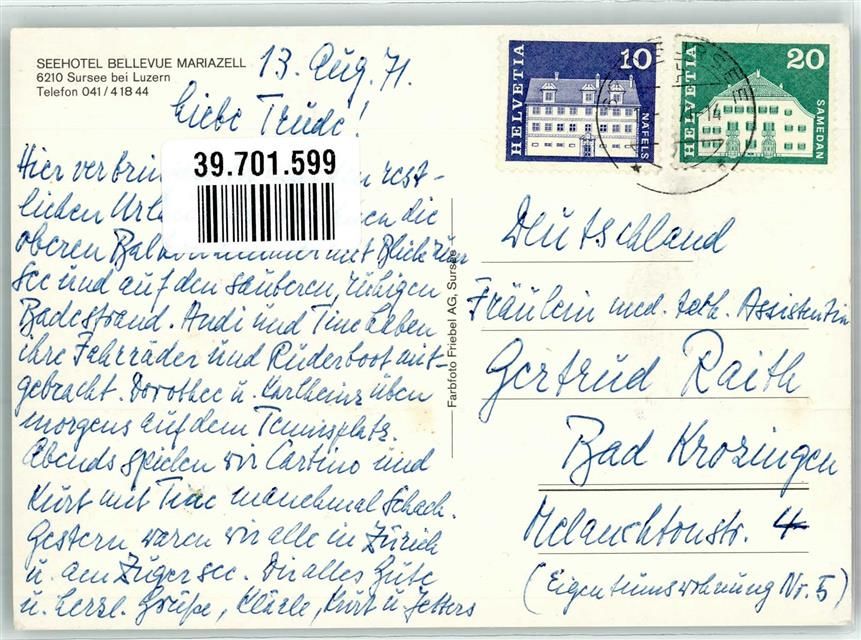 SEEHOTEL BELLEVUE MARIAZELL
6210 Sursee bei Luzern
Telefon 041/4 18 44
13. Aug. 71.
Liebe Trude!
39.701.599
Hier verbrin n rest-
lichen Url en die
oberen Balkonzimmer mit Blick zum
See und auf den sauberen, ruhigen
Badestrand. Andi und Tine haben
ihre Fahrräder und Ruderboot mit-
gebracht. Dorothee u. Karlheinz üben
morgens auf dem Tennisplatz.
Abends spielen wir Cartino und
Kurt mit Tine manchmal Schach.
Gestern waren wir alle in Zürich
u. am Zuger See. Dir alles Gute
u. herzl. Grüße, Klärle, Kurt u.
Farbfoto Friebel AG, Sursee
HELVETIA 10 NÄFELS
HELVETIA 20 SAMEDAN
SURSEE
14
Deutschland
Fräulein med. tech. Assistentin
Gertrud Raith
Bad Krozingen
Melanchtonstr. 4
(Eigentumswohnung Nr. 5)